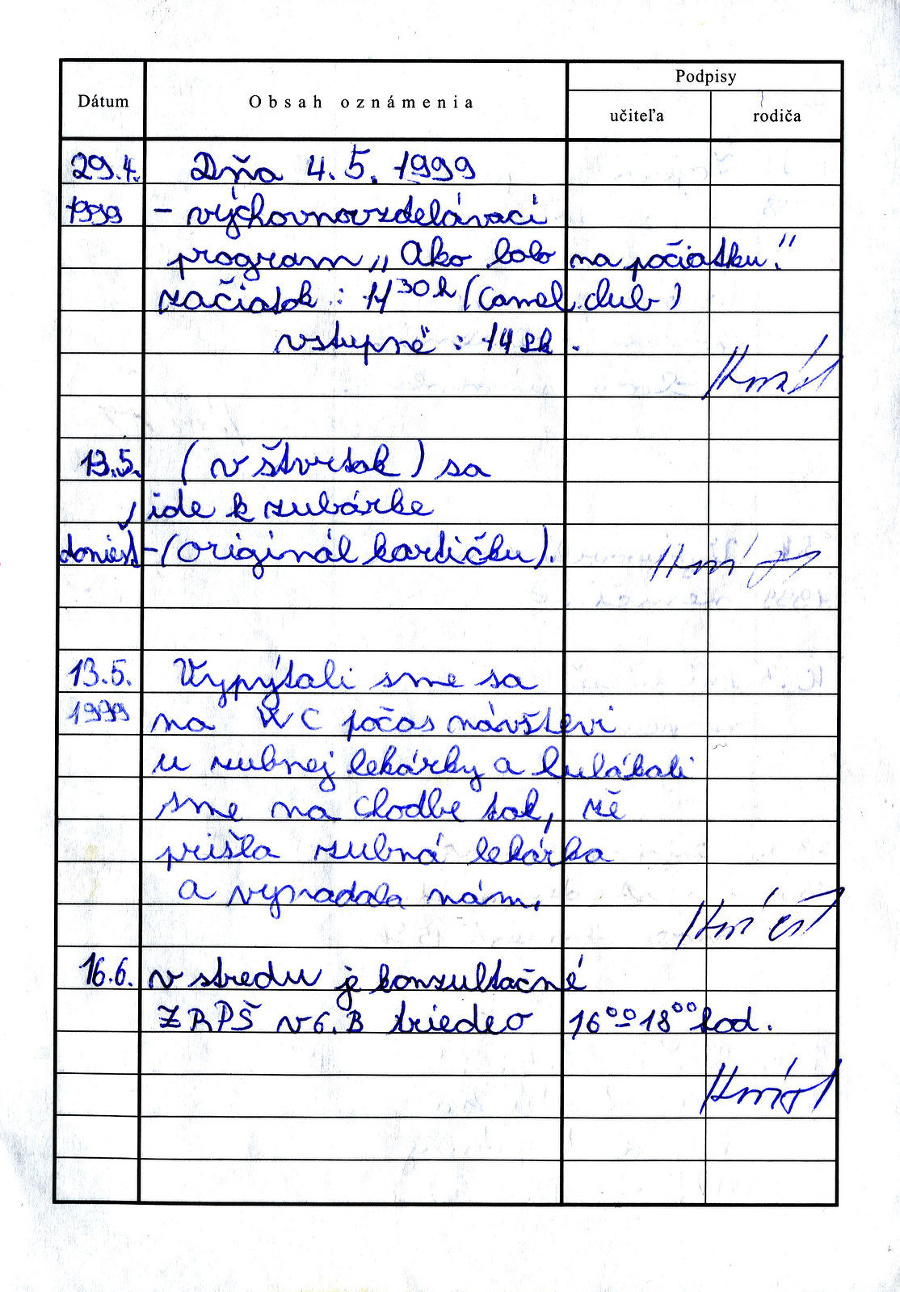 Podpisy
Dátum Obsah oznámenia učiteľa rodiča
29.4. Dňa 4.5. 1999
1999 - výchovnovzdelávací
program „Ako bolo na počiatku."
začiatok : 14³⁰ h (Camel club)
vstupné : 14 Sk.
13.5. (v štvrtok) sa
ide k zubárke
doniesť - (originál kartičku).
13.5. Vypýtali sme sa
1999 na WC počas návštevi
u zubnej lekárky a hulákali
sme na chodbe tak, že
prišla zubná lekárka
a vynadala nám.
16.6. v stredu je konzultačné
ZRPŠ v 6. B triede o 16⁰⁰-18⁰⁰ hod.